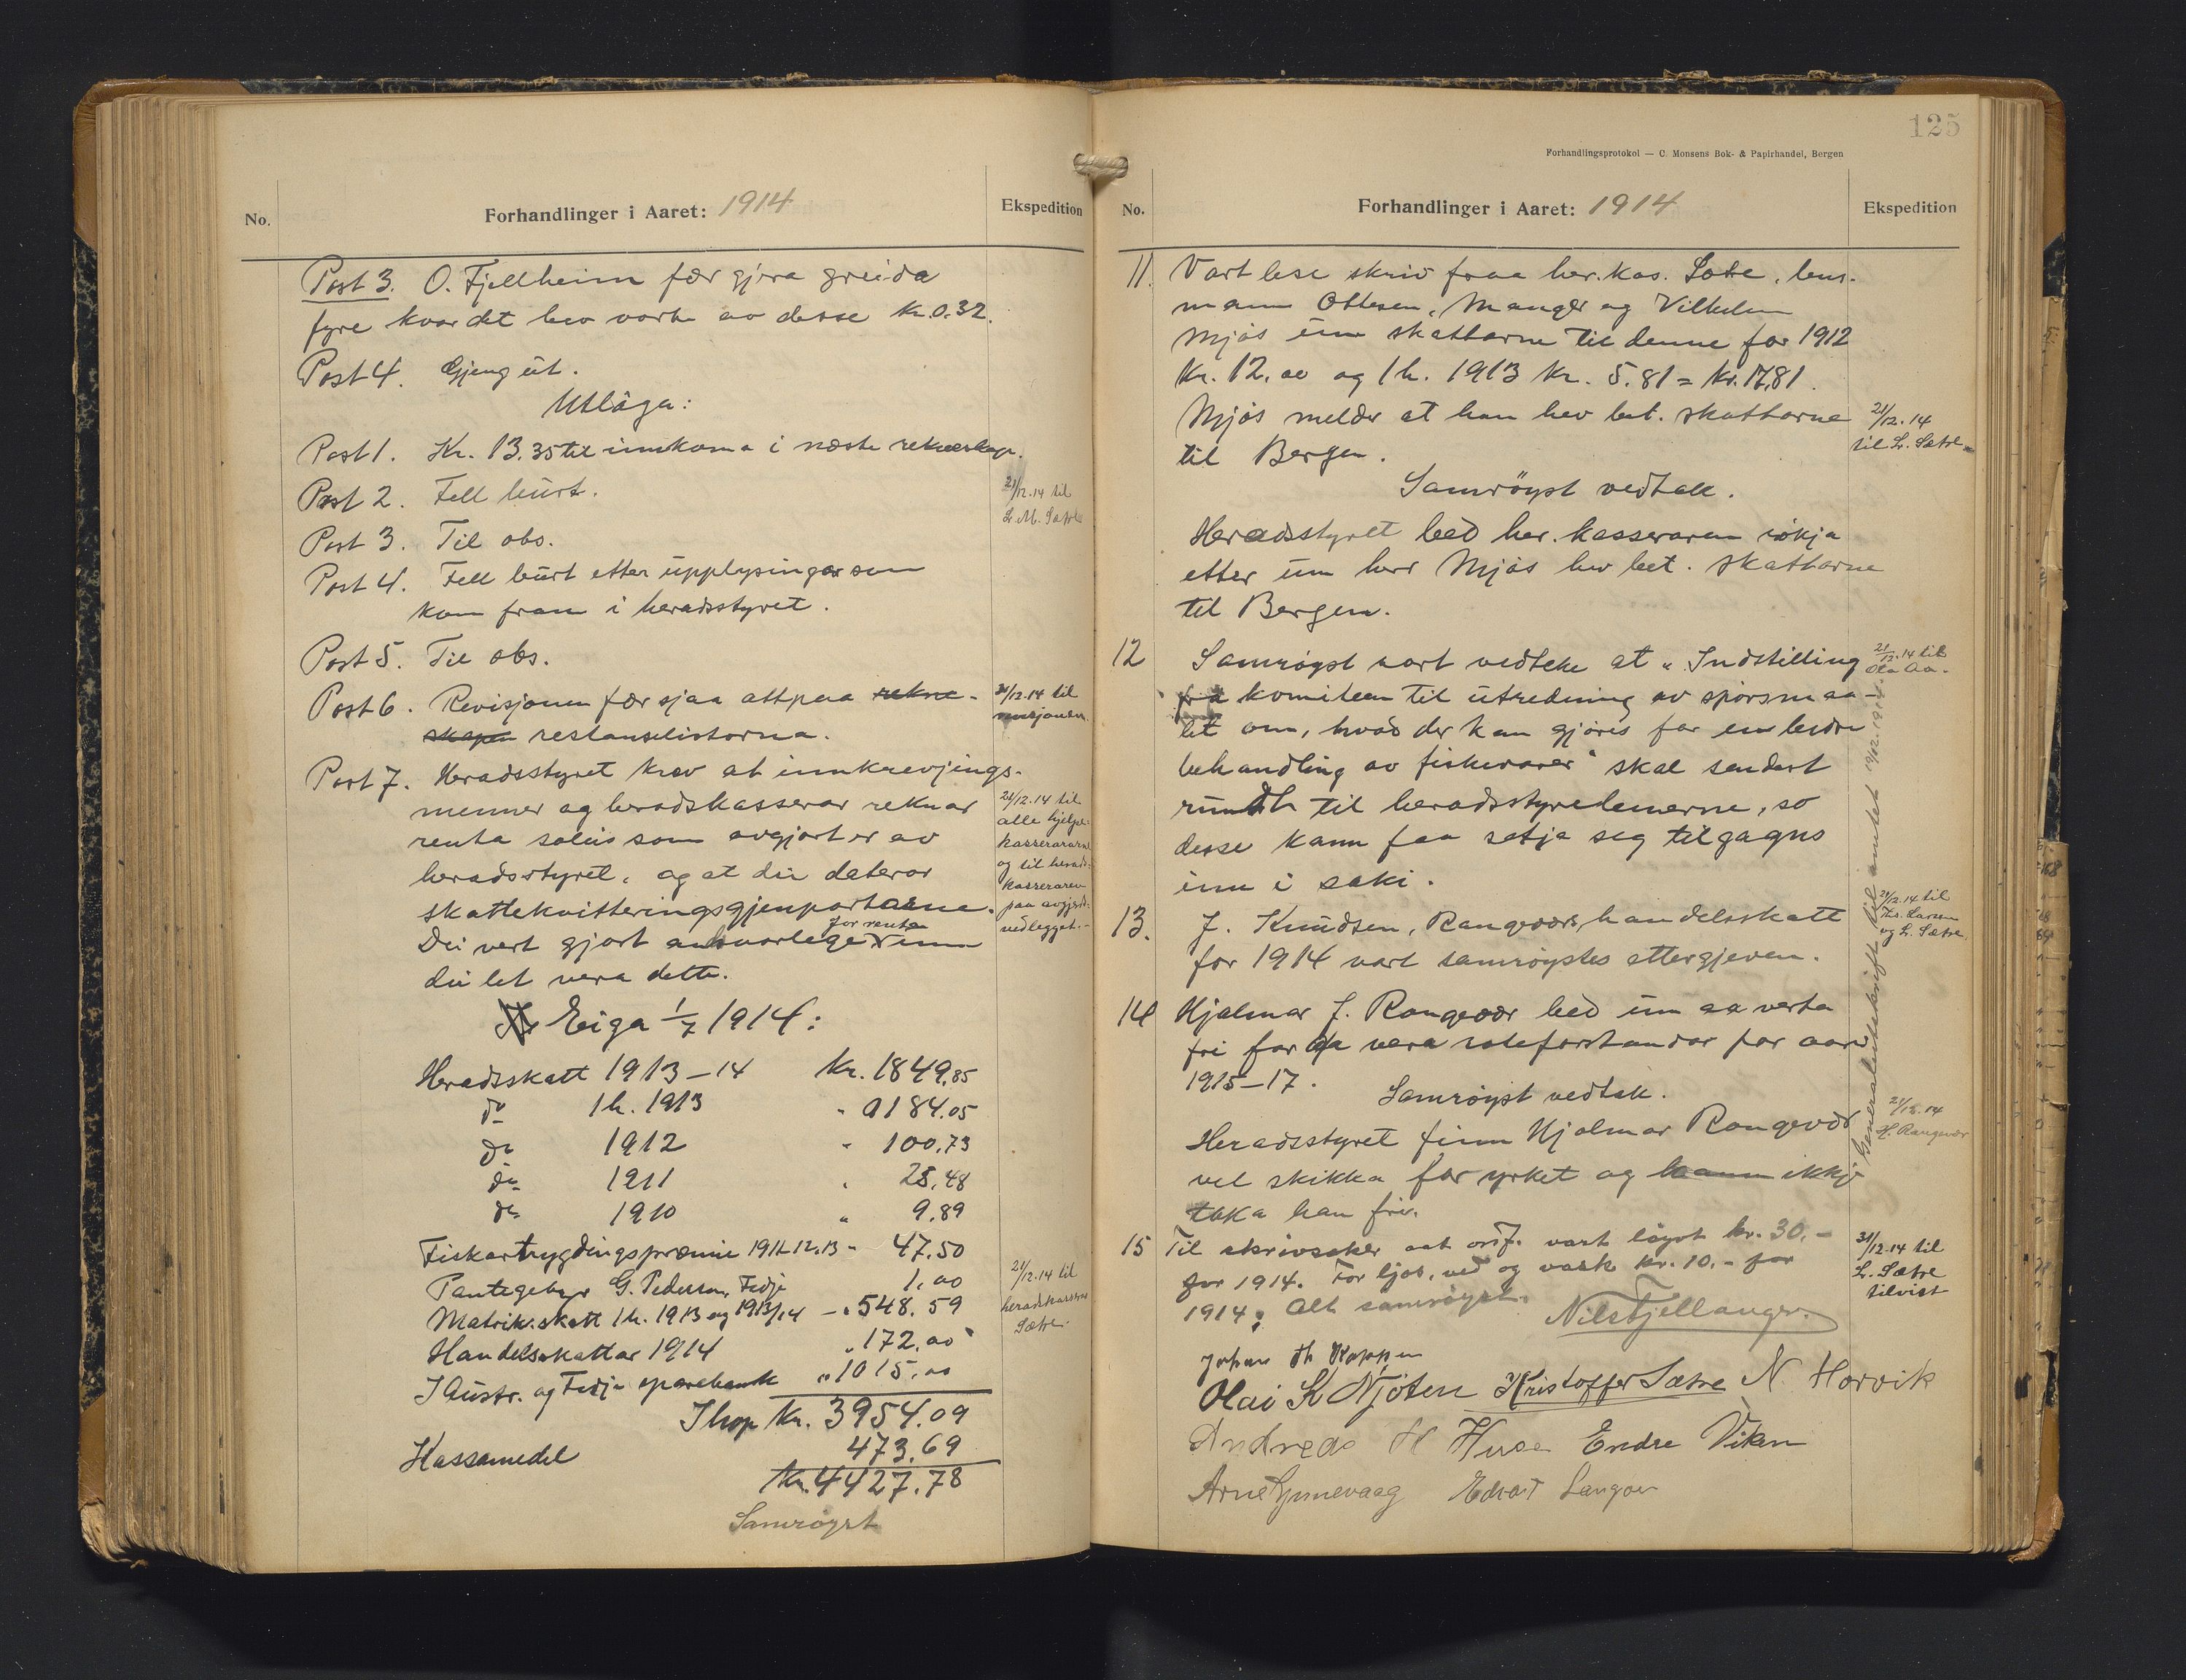 No.
Forhandlinger i Aaret: 1914
Ekspedition
Post 3. O. Fjellheim fær gjera greida
fyre kvar det hev vorte av desse kr. 0.32.
Post 4. Gjeng út.
Utlåga:
Post 1. Kr. 13.35 til innkoma i næste rekneskap.
Post 2. Fell burt.
21/12.14 til
L. M. Sætre
Post 3. Til obs.
Post 4. Fell burt etter upplysingar som
kom fram i heradsstyret.
Post 5. Til obs.
Post 6. Revisjonen fær sjaa attpaa rekne-
skapen restanselistorna.
21/12.14 til
revisjonen
Post 7. Heradsstyret krev at innkrevjings-
menner og heradskasserar reknar
renta soleis som avgjort er av
heradsstyret, og at dei daterar
skattekvitteringsgjenpartarne.
Dei vert gjort ansvarlege for renta um
dei let vera dette.
21/12.14 til
alle hjelpe-
kasserarar
og til herads-
kasseraren
paa avgjerds-
vedlegget.-
Eiga 1/7 1914:
Heradsskatt 1913-14 kr. 1849.85
do 1h. 1913 " 184.05
do 1912 " 100.73
do 1911 " 25.48
do 1910 " 9.89
Fiskartrygdingspræmie 1911-12.13 - 47.50
Pantegebyr G. Pederson, Fedje 1.00
Matrik.skatt 1h. 1913 og 1913/14 - " 548.59
Handelsskattar 1914 " 172.00
I Austr. og Fedje sparebank " 1015.00
21/12.14 til
heradskasserar
Sætre.
Ihop kr. 3954.09
Kassamedel 473.69
kr. 4427.78
Samrøyst
125
Forhandlingsprotokol — C. Monsens Bok- & Papirhandel, Bergen
No.
Forhandlinger i Aaret: 1914
Ekspedition
11. Vart lese skriv fraa her.kas. Sætre, lens-
mann Ottesen, Manger og Vilhelm
Mjøs um skattarne til denne for 1912
kr. 12.00 og 1h. 1913 kr. 5.81 = kr. 17.81.
Mjøs melder at han hev bet. skattarne
til Bergen.
21/12.14
til L. Sætre
Samrøyst vedtak.
Heradsstyret bed her.kasseraren søkja
etter um herr Mjøs hev bet. skattarne
til Bergen.
12 Samrøyst vart vedteke at "Indstilling
fra komiteen til utredning av spørsmaa-
let om, hvad der kan gjøres for en bedre
behandling av fiskevarer" skal sendast
rundt til heradsstyrelemerne, so
desse kann faa setja seg tilgagns
inn i saki.
21/12.14 til
Ola Aa.
Generalutskrift til amtet 19/12.1914.
13. J. Knudsen, Rangøvær, handelsskatt
for 1914 vart samrøystes ettergjeven.
21/12.14 til
Ths. Larsen
og L. Sætre.
14 Hjalmar J. Rongevær bed um aa verta
fri for aa vera roteforstandar for aari
1915-17.
Samrøyst vedtak.
Heradsstyret finn Hjalmar Rongevær
vel skikka for yrket og kann ikkje
taka han fri.
21/12.14
H. Rangevær
15 Til skrivsaker aat ordf. vart løyvt kr. 30.-
for 1914. For ljos, ved og vask kr. 10.- for
1914. Alt samrøyst.
31/12.14 til
L. Sætre
tilvist
Nils Fjellanger.
Johan Th Koppen
Olai K Njøten Kristoffer Sætre N. Horvik
Andreas H Huse Endre Viken
Arne Synnevaag Edvart Langøen